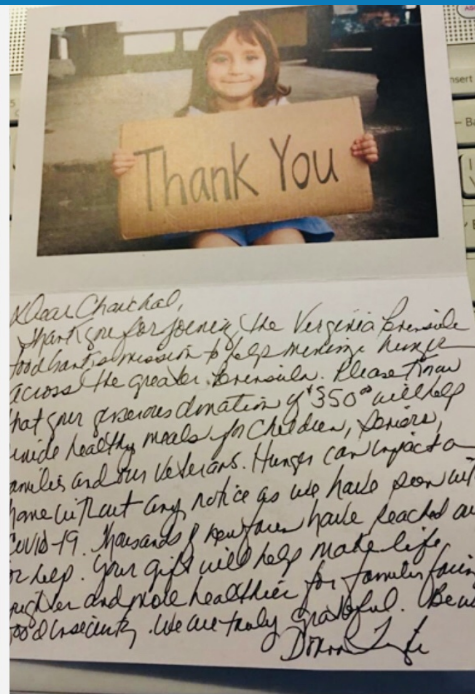 Thank You
Dear Chanchal,
Thank you for joining the Virginia Peninsula
Foodbank's mission to help minimize hunger
across the greater Peninsula. Please know
that your generous donation of $350⁰⁰ will help
healthy meals for children, seniors,
families and our Veterans. Hunger can impact a
home without any notice as we have seen with
COVID-19. Thousands of new faces have reached out
for help. Your gift will help make life
brighter and more healthier for families facing
food insecurity. We are truly grateful. Be
Donna